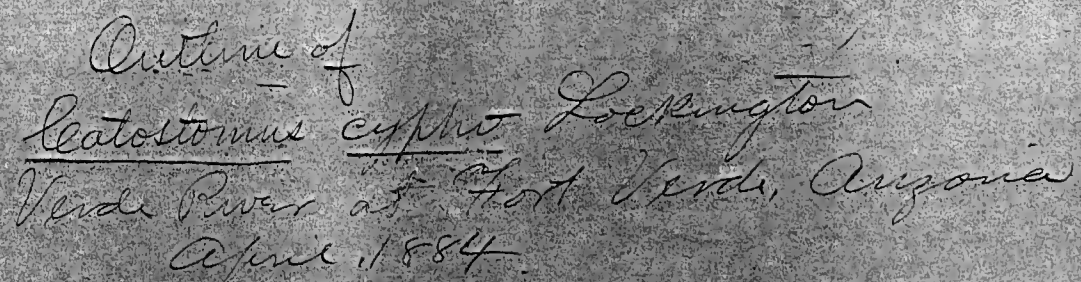 Outline of
Catostomus cypho Lockington
Verde River at Fort Verde, Arizona
April, 1884.